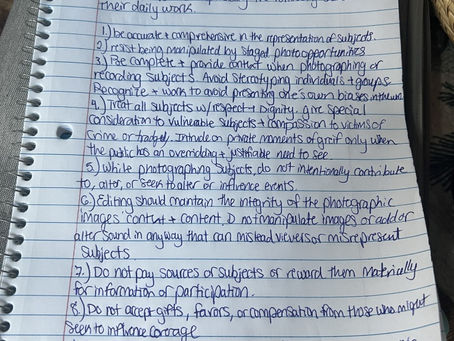 their daily work.
1.) be accurate + comprehensive in the representation of subjects.
2) resist being manipulated by staged photo opportunities
3.) Be complete + provide context when photographing or
recording subjects. Avoid stereotyping individuals + groups.
Recognize + work to avoid presenting one's own biases in the
4.) Treat all subjects w/ respect + Dignity. give special
consideration to vulnerable subjects + compassion to victims of
crime or tradgedy. Intrude on private moments of greif only when
the public has an overriding + justifiable need to see
5.) While photographing subjects, do not intentionally contribute
to, alter, or seek to alter or influence events.
6.) Editing should mantain the integrity of the photographic
images' context + content. D not manipulate images or add or
alter sound in any way that can mislead viewers or misrepresent
subjects
7.) Do not pay sources or subjects or reward them materically
for information of participation.
8.) Do not accept gifts, favors, or compensation from those who might
seek to influence